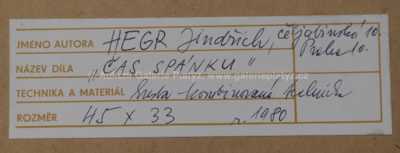 JMÉNO AUTORA HEGR Jindřich, Čeljabinská 10.
Praha 10.
NÁZEV DÍLA „ČAS SPÁNKU"
TECHNIKA A MATERIÁL kresba - kombinovaná technika
ROZMĚR 45 x 33 r. 1980